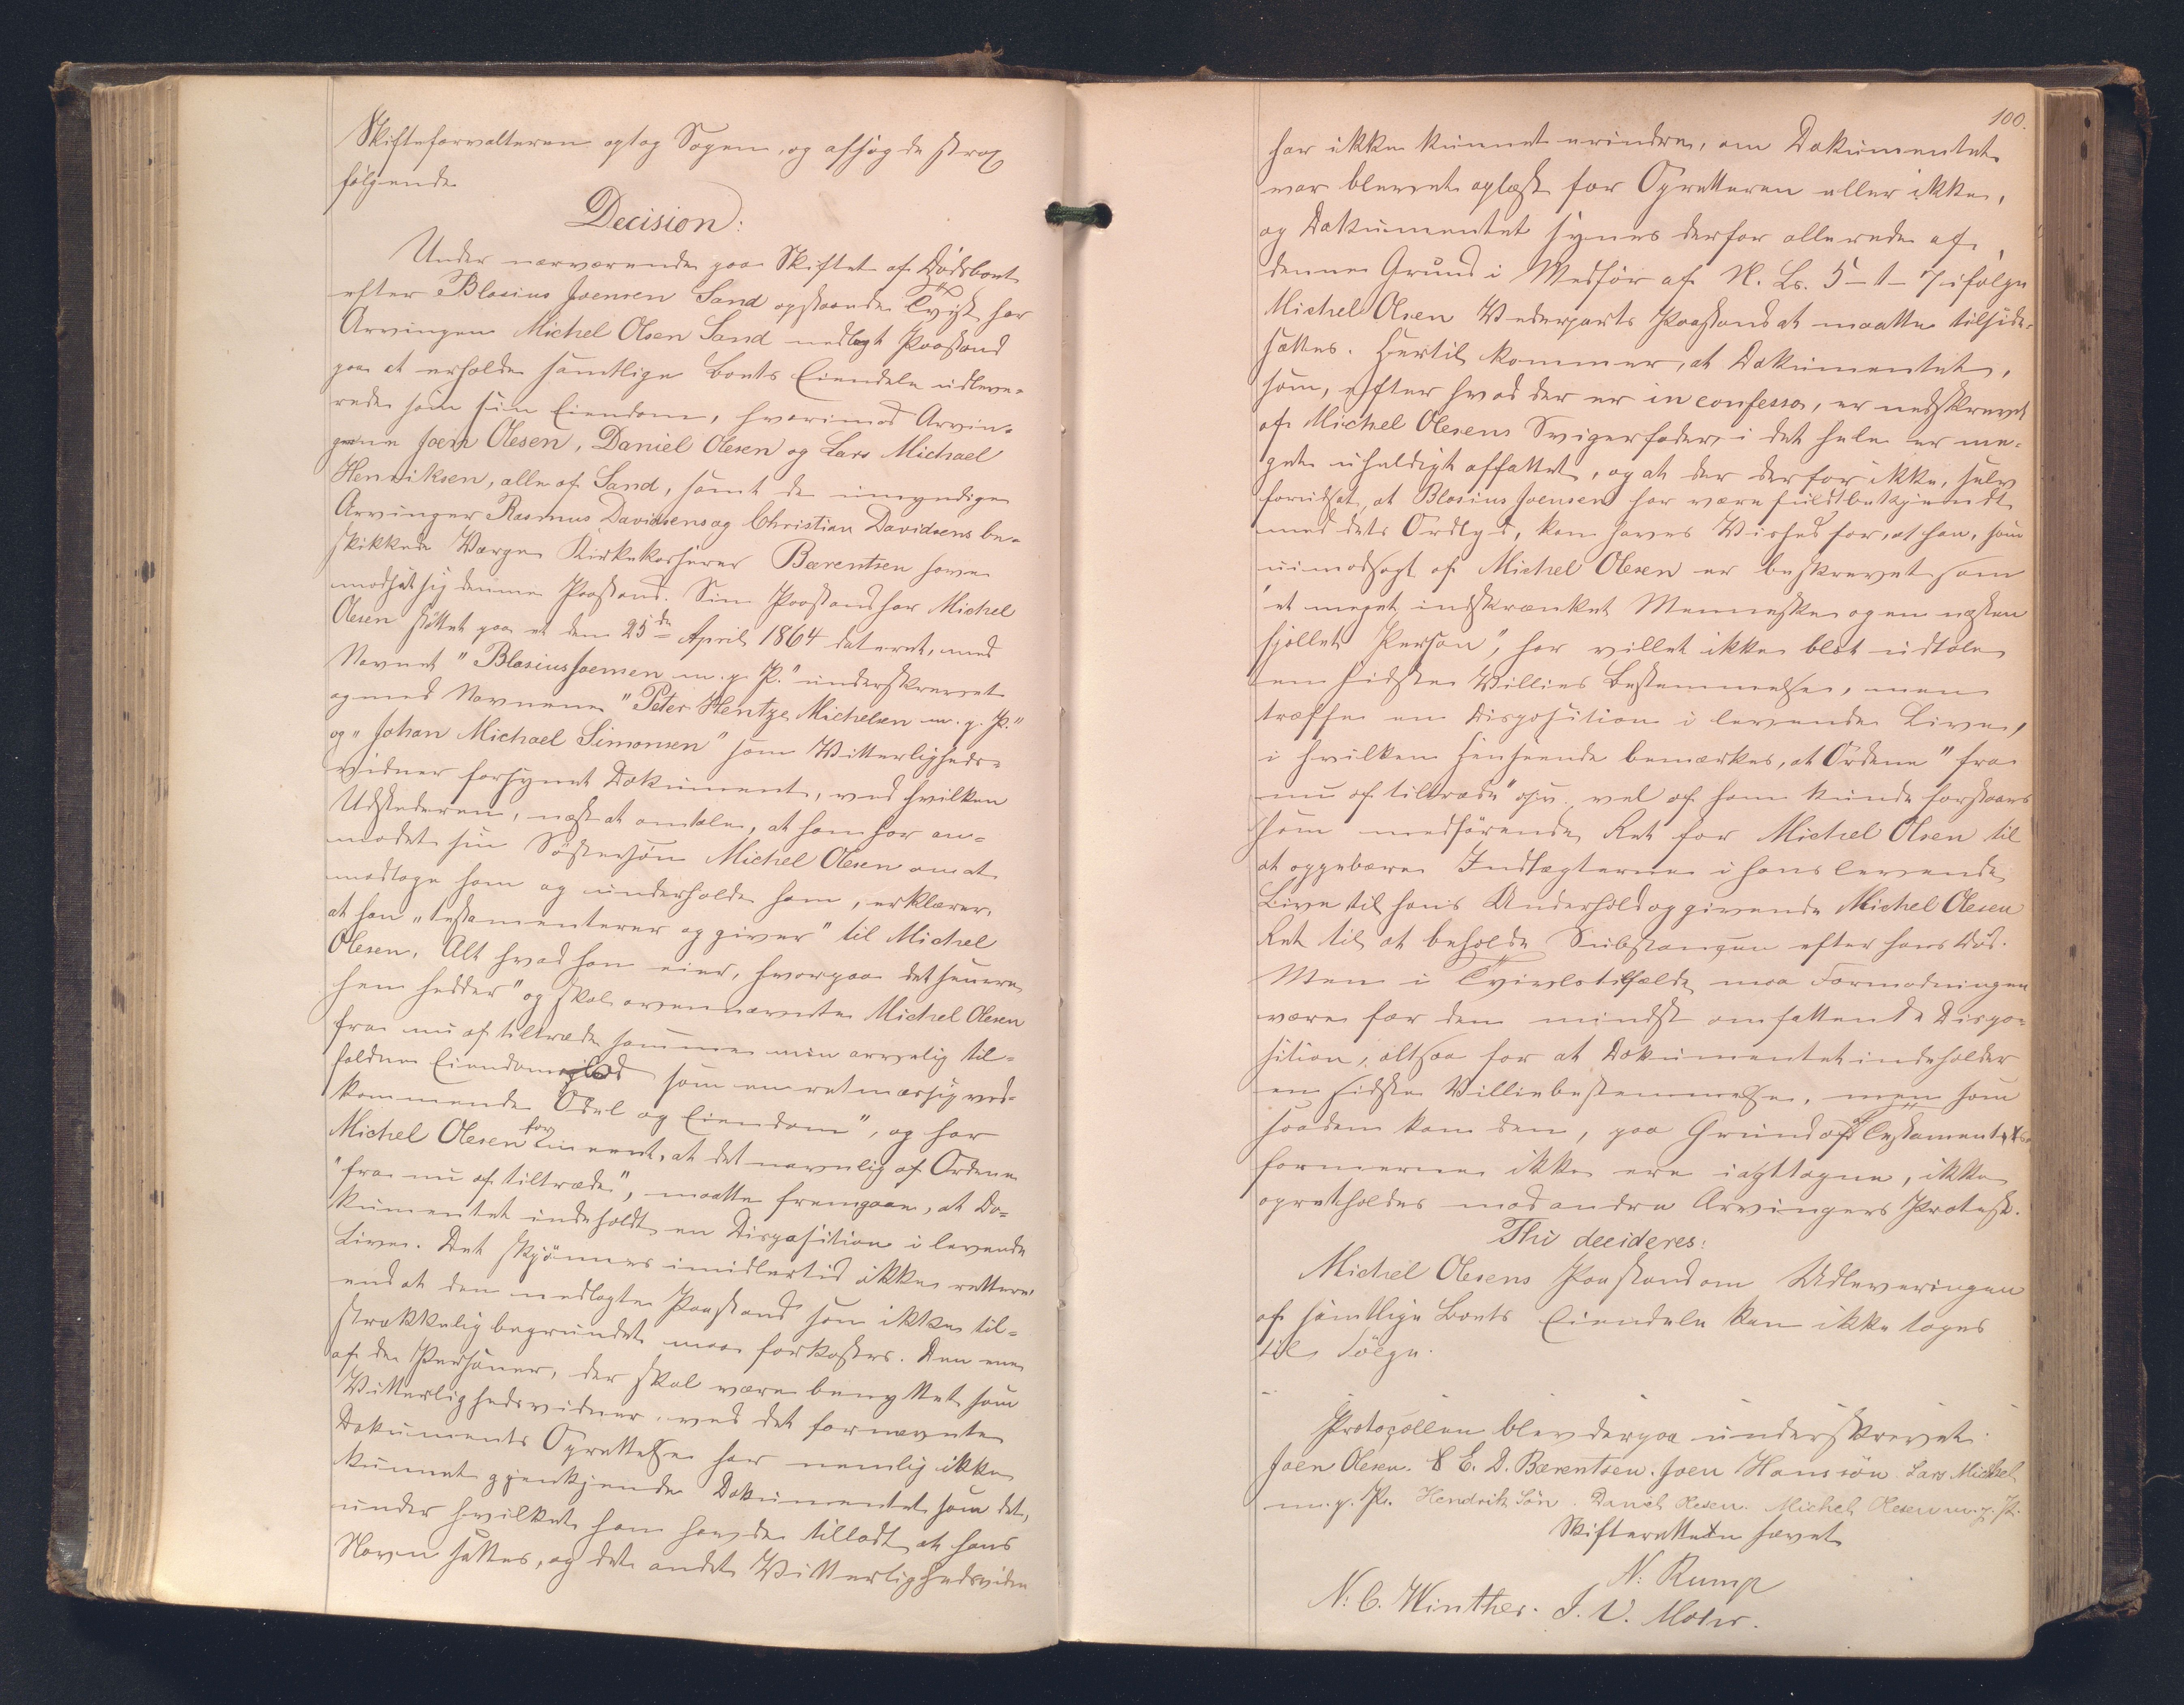 Skifteforvalteren optog Sagen, og afsagde strax
følgende
Decision:
Under nærværende paa Skiftet af Dødsboet
efter Blasius Joensen Sand opstaaende Tvist har
Arvingen Michel Olsen Sand nedlagt Paastand
paa at erholde samtlige Boets Eiendele udleve-
rede som sin Eiendom, hvorimod Arvin-
gerne Joen Olesen, Daniel Olesen og Lars Michael
Henriksen, alle af Sand, samt de umyndige
Arvinger Rasmus Davidsens og Christian Davidsens be-
skikkede Værge Kirkekasserer Bærentsen have
modsat sig denne Paastand. Sin Paastand har Michel
Olesen støttet paa et den 25de April 1864 dateret, med
Navnet "Blasius Joensen m. p. P." underskrevet
og med Navnene "Peter Hentze Michelsen m. p. P."
og "Johan Michael Simonsen" som Vitterligheds-
vidner forsynet Dokument, ved hvilken
Udstederen, næst at omtale, at han har an-
modet sin Søstersøn Michel Olesen om at
modtage ham og underholde ham, erklærer,
at han "testamenterer og giver" til Michel
Olesen, Alt hvad han eier, hvorpaa det senere
hen hedder "og skal ovennævnte Michel Olesen
fra nu af tiltræde samme min arvelig til-
faldne Eiendomslod som en retmæssig ved-
kommende Odel og Eiendom", og har
Michel Olesen formeent, at det navnlig af Ordene
"fra nu af tiltræde", maatte fremgaae, at Do-
kumentet indeholdt en Disposition i levende
Live. Det skjønnes imidlertid ikke rettere
end at den nedlagte Paastand som ikke til-
strækkelig begrundet maa forkastes. Den ene
af de Personer, der skal være benyttet som
Vitterlighedsvidner ved det fornævnte
Dokuments Oprettelse har nemlig ikke
kunnet gjenkjende Dokumentet som det,
under hvilket han havde tilladt at hans
Navn sattes, og det andet Vitterlighedsvidne
100.
har ikke kunnet erindre, om Dokumentet
var blevet oplæst for Opretteren eller ikke,
og Dokumentet synes derfor allerede af
denne Grund i Medfør af N. L. 5-1-7 ifølge
Michel Olsen Vederparts Paastand at maatte tilside-
sættes. Hertil kommer, at Dokumentet,
som, efter hvad der er in confesso, er nedskrevet
af Michel Olesens Svigerfader i det hele er me-
get uheldigt affattet, og at der derfor ikke, selv
forudsat, at Blasius Joensen har være fuldt bekjendt
med dets Ordlyd, kan haves Vished for, at han, som
uimodsagt af Michel Olesen er beskrevet som
"et meget indskrænket Menneske og en næsten
fjollet Person", har villet ikke blot udtale
en sidste Villies Bestemmelse, men
træffe en Disposition i levende Live,
i hvilken Henseende bemærkes, at Ordene "fra
nu af tiltræde" osv. vel af ham kunde forstaaes
som medførende Ret for Michel Olsen til
at oppebære Indtægterne i hans levende
Live til hans Underhold og givende Michel Olesen
Ret til at beholde Substansen efter hans Død.
Men i Tvivlstilfælde maa Formodningen
være for den mindst omfattende Dispo-
sition, altsaa for at Dokumentet indeholder
en sidste Villiebestemmelse, men som
saadan kan den, paa Grund af at Testaments-
formerne ikke ere iagttagne, ikke
opretholdes mod andre Arvingers Protest.
Thi decideres:
Michel Olesens Paastand om Udleveringen
af samtlige Boets Eiendele kan ikke tages
til Følge.
Protocollen blev derpaa underskrevet.
Joen Olesen. E. D. Bærentsen. Joen Hanssøn. Lars Michel
m. p. P. Hendrik Søn. Daniel Olesen. Michel Olesen m. p. P.
Skifteretten hævet
N: Rump
N: C. Winther. J. V. Moter.